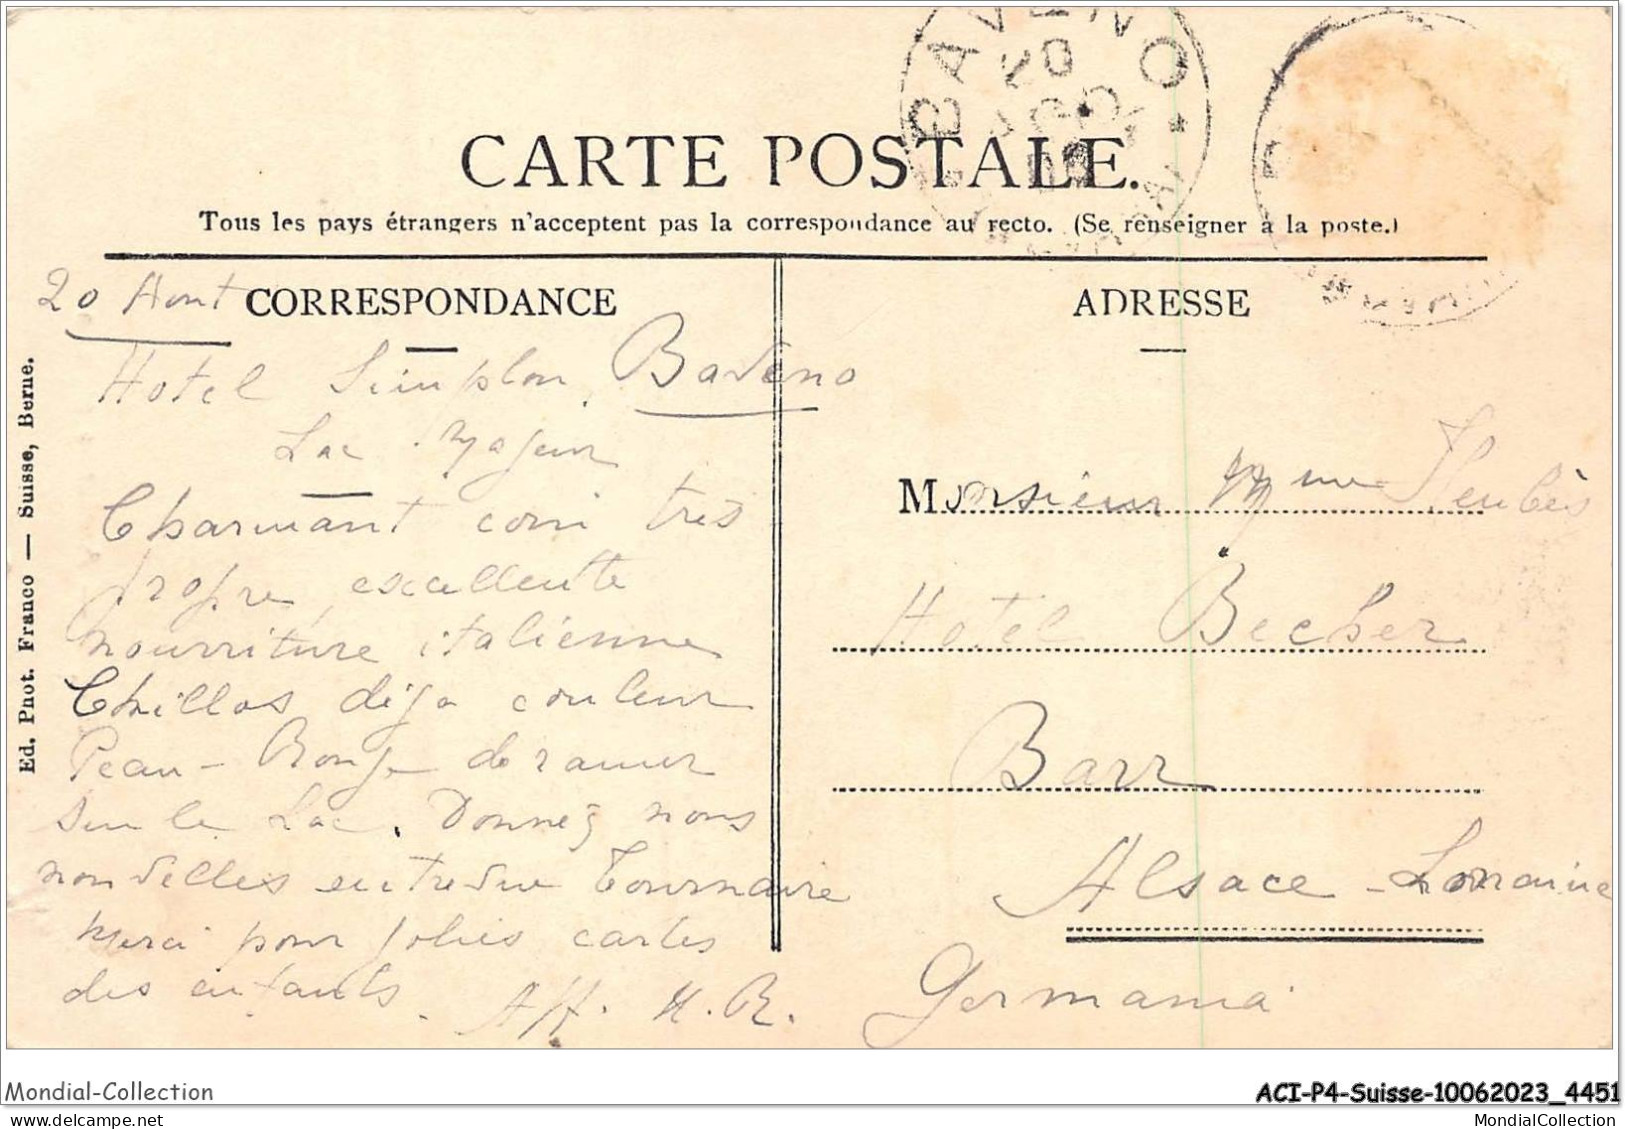 BAVENO
CARTE POSTALE.
Tous les pays étrangers n'acceptent pas la correspondance au recto. (Se renseigner à la poste.)
20 Aout
CORRESPONDANCE
Hotel Simplon, Baveno
Lac Majeur
Charmant coin très
propre, excellente
nourriture italienne
déja couleur
Peau-Rouge de ramer
sur le Lac. Donnez nous
nouvelles entrevue Tournaire
Merci pour jolies cartes
des enfants. Aff. H. R.
ADRESSE
Monsieur Mme
Hotel Becher
Barr
Alsace-Lorraine
Germania
Ed. Phot. Franco — Suisse, Berne.
Mondial-Collection
ACI-P4-Suisse-10062023_4451
MondialCollection